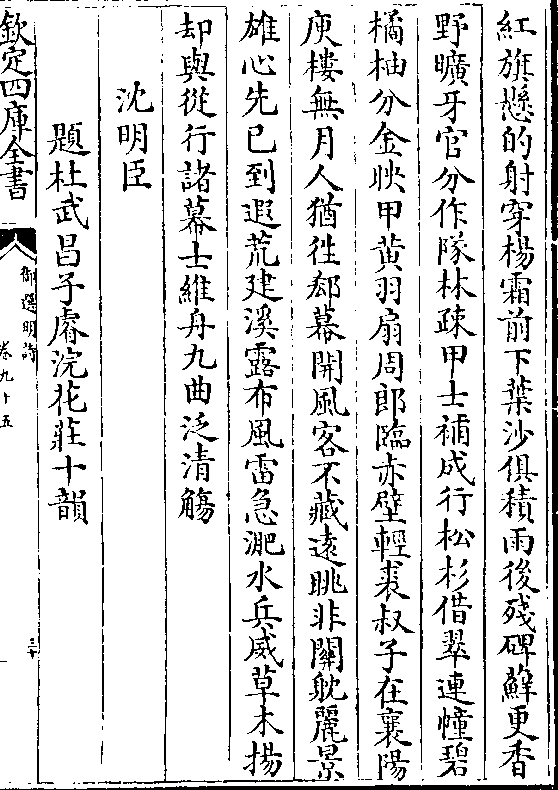 紅旗懸的射穿楊霜前下葉沙俱積雨後殘碑蘚更香
野曠牙官分作隊林疎甲士補成行松杉借翠連幢碧
橘柚分金映甲黄羽扇周郎臨赤壁輕裘叔子在襄陽
庾樓無月人猶徃郄幕開風客不藏遠眺非關躭麗景
雄心先已到遐荒建溪露布風雷急淝水兵威草木揚
却與從行諸幕士維舟九曲泛清觴
沈明臣
題杜武昌子睿浣花莊十韻
欽定四庫全書
御選明詩
卷九十五
三十